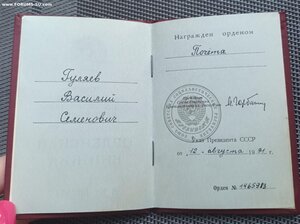 www.FORUMS-SU.com
Гуляев
Василий
Семенович
Награжден орденом
Почета
Указ Президента СССР
от „12„ августа 1991 г.
Орден №